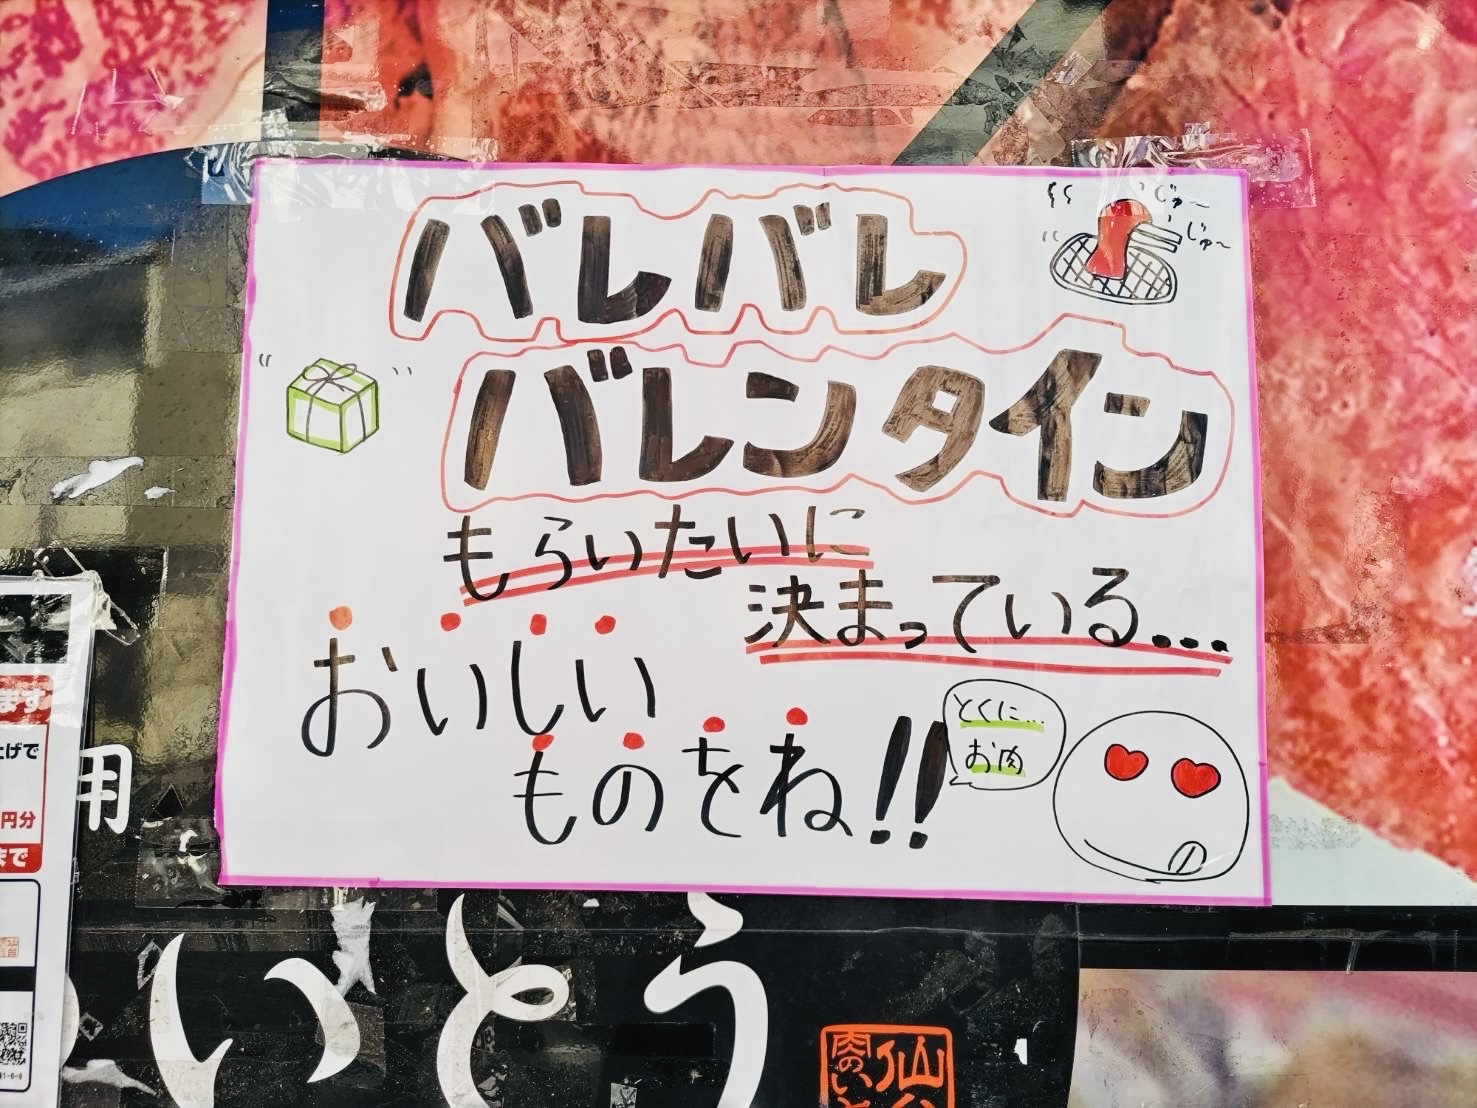 バレバレ
じゅ〜
じゅ〜
バレンタイン
もらいたいに
決まっている...
おいしい
ものをね!!
とくに...
お肉
ます
上げで
円分
まで
用
いとう
仙台
肉のいと